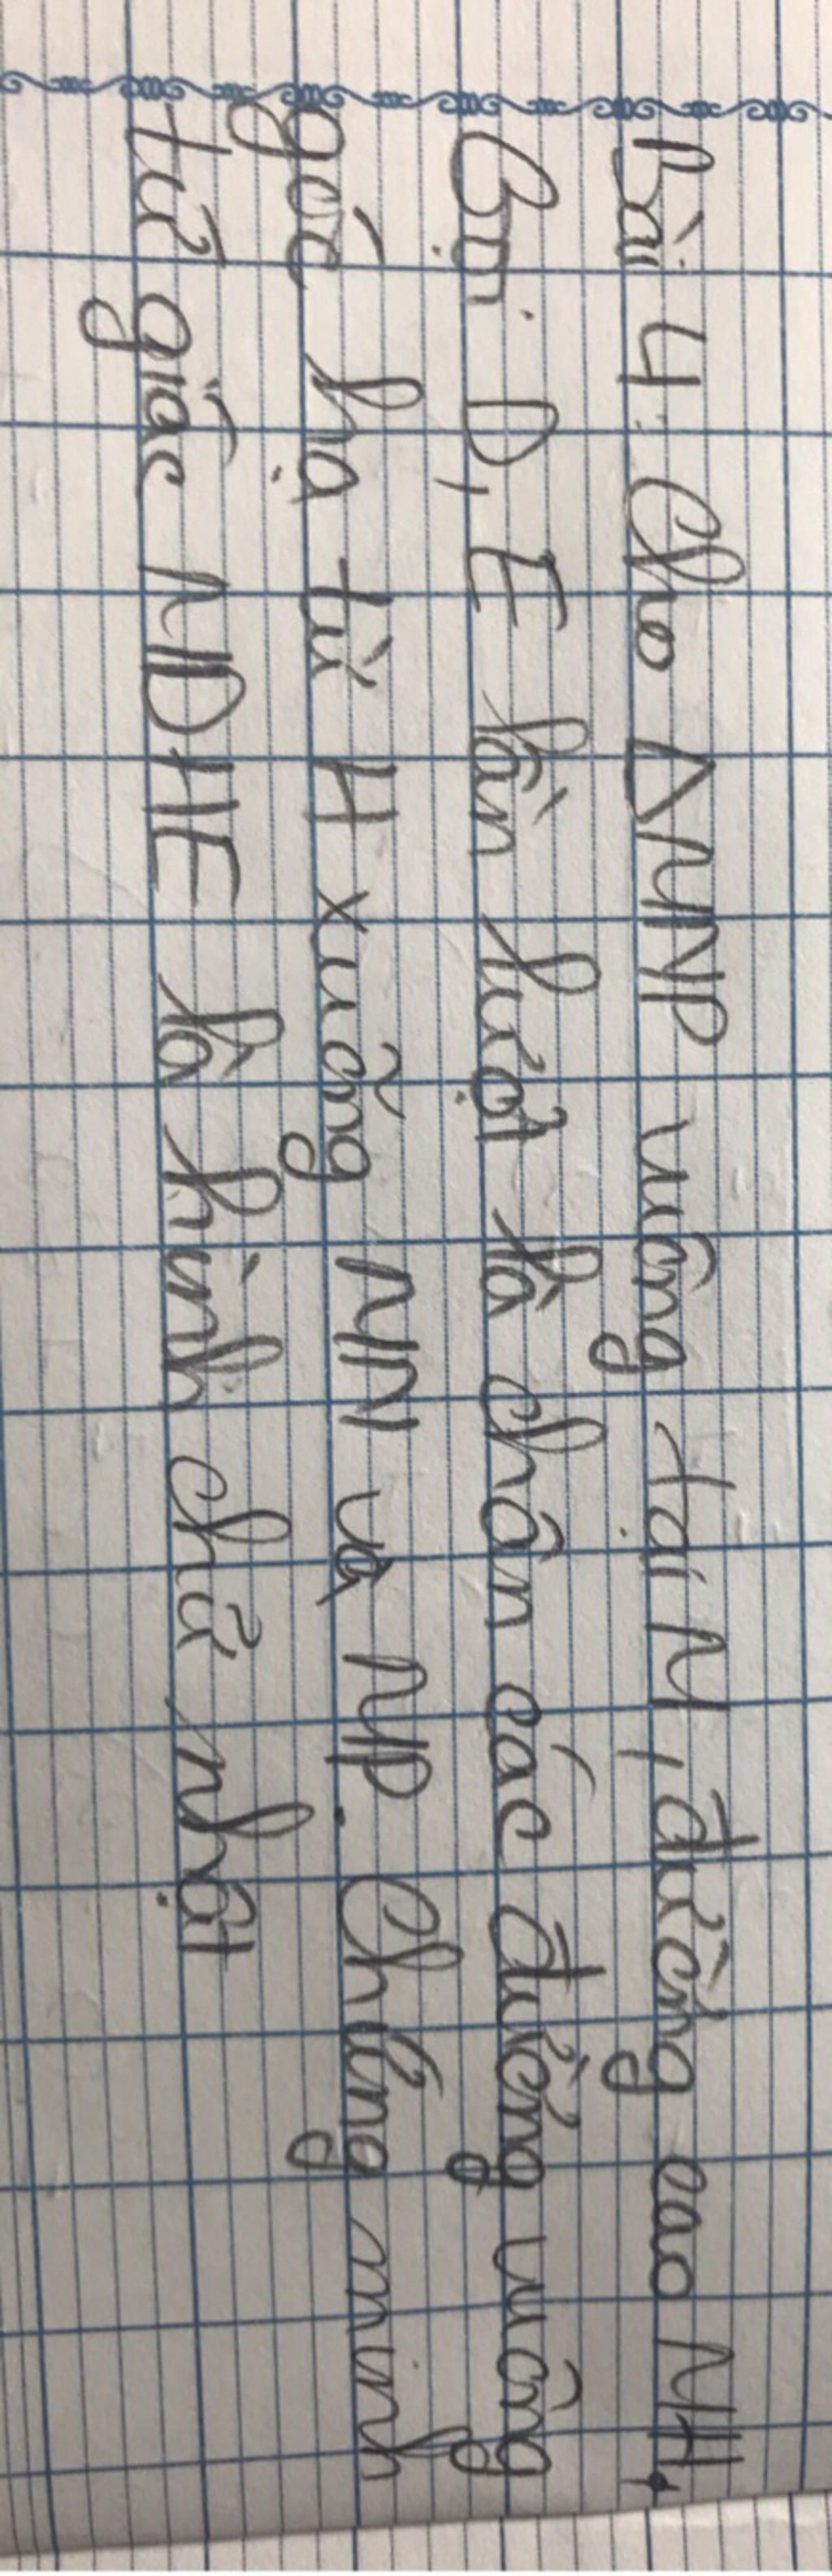 Bài 4: Cho ΔMNP vuông tại M, đường cao MH.
Gọi D, E lần lượt là chân các đường vuông
góc hạ từ H xuống MN và MP. Chứng minh
tứ giác MDHE là hình chữ nhật